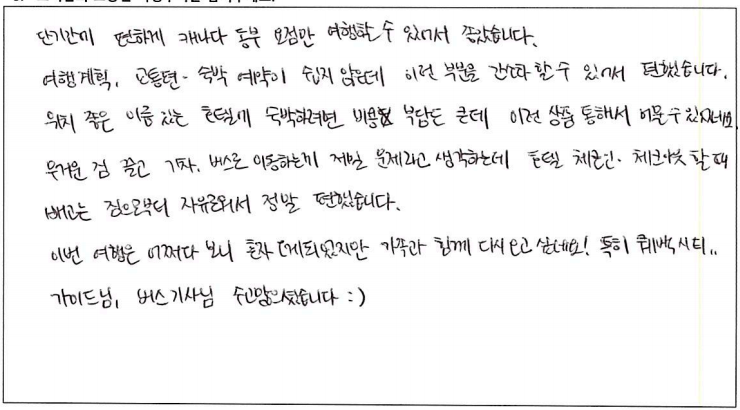 단기간에 편하게 캐나다 동부 요점만 여행할 수 있어서 좋았습니다.
여행계획, 교통편·숙박 예약이 쉽지 않은데 이런 부분을 간소화 할 수 있어서 편했습니다.
위치 좋은 이름 있는 호텔에 숙박하려면 비용 부담도 큰데 이런 상품 통해서 머물 수 있었네요.
무거운 짐 끌고 기차, 버스로 이동하는게 제일 문제라고 생각하는데 호텔 체크인·체크아웃 할 때
빼고는 짐으로부터 자유로워서 정말 편했습니다.
이번 여행은 어쩌다 보니 혼자 하게되었지만 가족과 함께 다시 오고 싶네요! 특히 퀘백시티..
가이드님, 버스기사님 수고많으셨습니다 :)